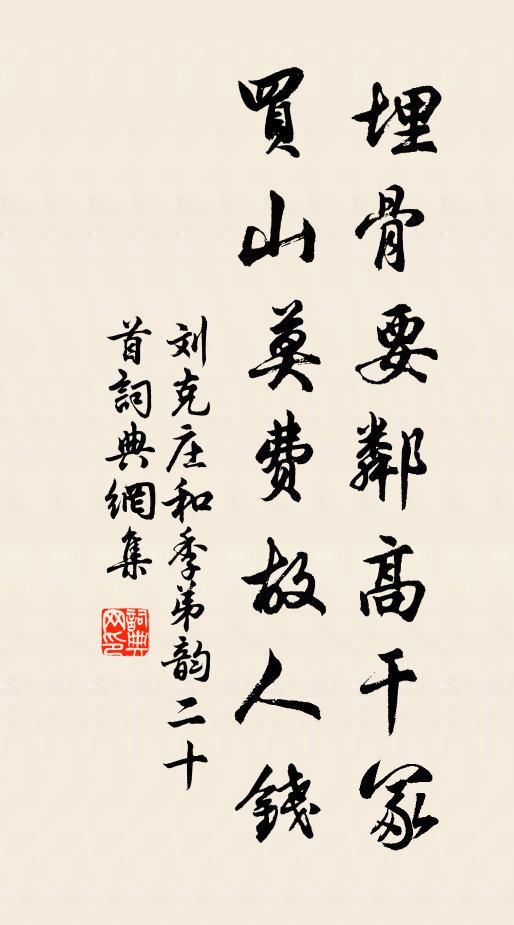 埋骨要鄰高干冢
買山莫費故人錢
刘克庄和季弟韵二十
首詞典網集
詞典网印